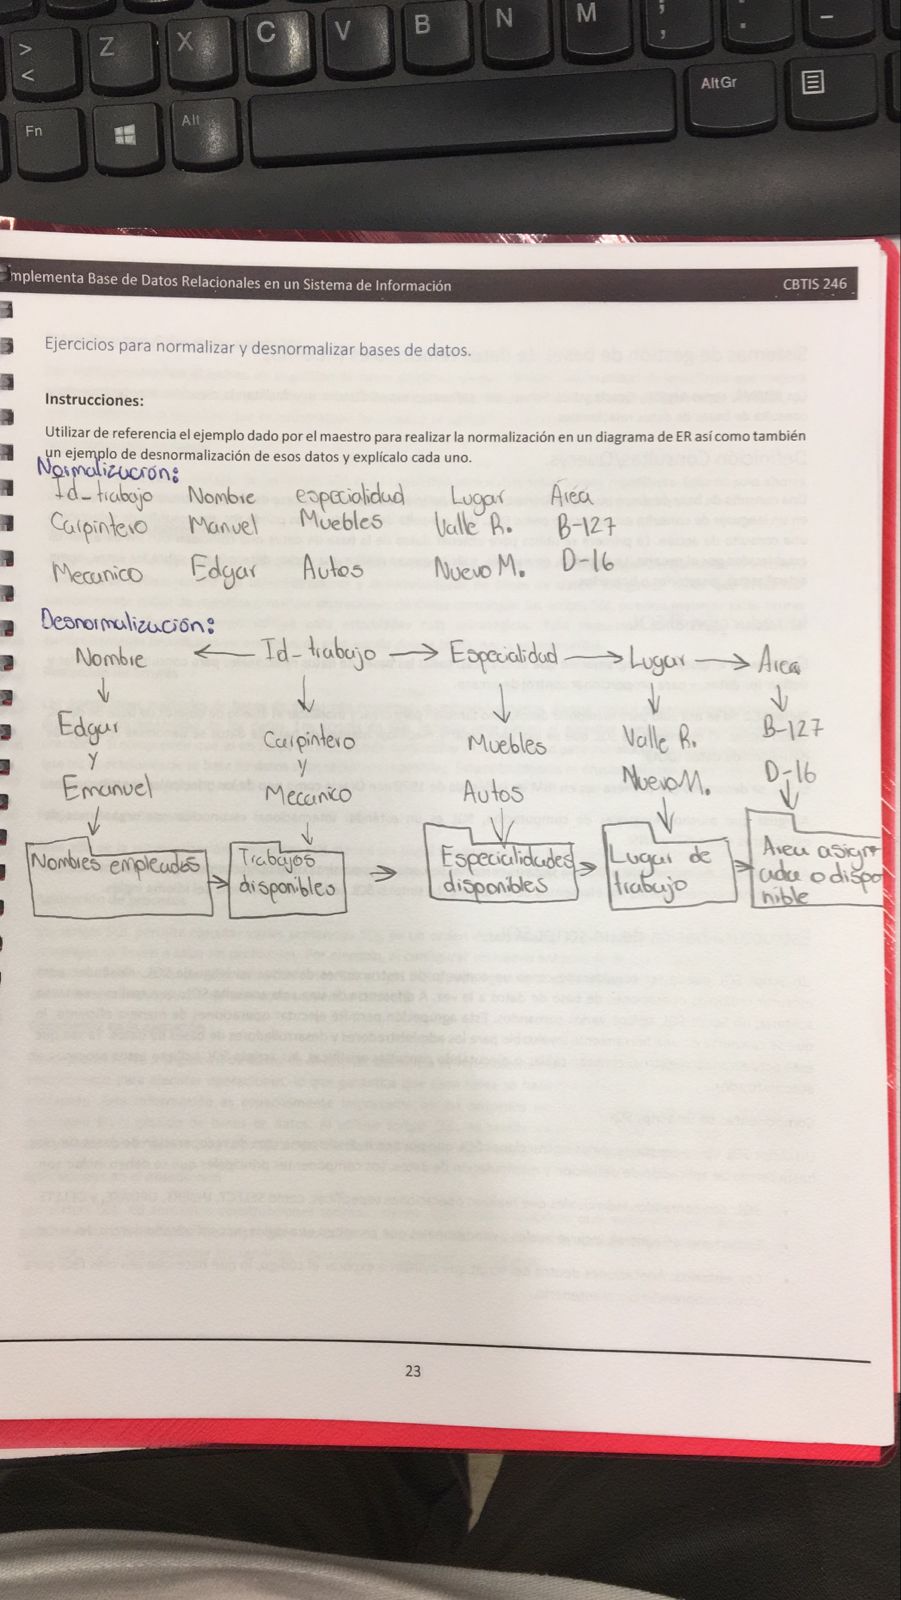 > < Z X C V B N M ; , : . _ -
Fn Alt AltGr
mplementa Base de Datos Relacionales en un Sistema de Información CBTIS 246
Ejercicios para normalizar y desnormalizar bases de datos.
Instrucciones:
Utilizar de referencia el ejemplo dado por el maestro para realizar la normalización en un diagrama de ER así como también
un ejemplo de desnormalización de esos datos y explícalo cada uno.
Normalización:
Id_trabajo Nombre especialidad Lugar Área
Carpintero Manuel Muebles Valle R. B-127
Mecanico Edgar Autos Nuevo M. D-16
Desnormalización:
Nombre ← Id_trabajo → Especialidad → Lugar → Area
Edgar Carpintero Muebles Valle R. B-127
y y
Emanuel Mecanico Autos Nuevo M. D-16
Nombres empleados Trabajos disponibles Especialidades disponibles Lugar de trabajo Area asignada o disponible
23